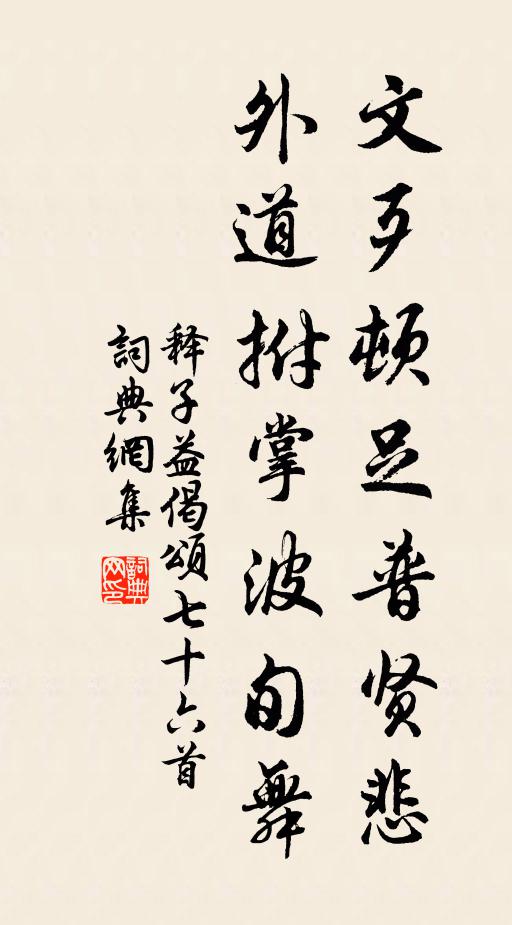 文歹頓足普贤悲
外道拊掌波旬舞
释子益偈頌七十六首
詞典網集
詞典网印